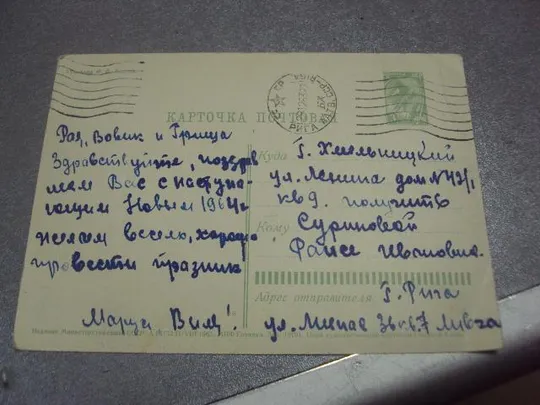 КАРТОЧКА ПОЧТОВАЯ
РИГА
Рая, Вовик и Гриша
Здравствуйте, поздрав
ляем Вас с наступа-
ющим Новым 1964 г.
желаем весело, хорошо
провести праздник
Маруся Вилл!
Куда Г. Хмельницкий
ул. Ленина дом N
кв 9. получить
Кому Суриновой
Раисе Ивановне.
Адрес отправителя: Г. Рига
ул. Лиепас 36 кв. 7